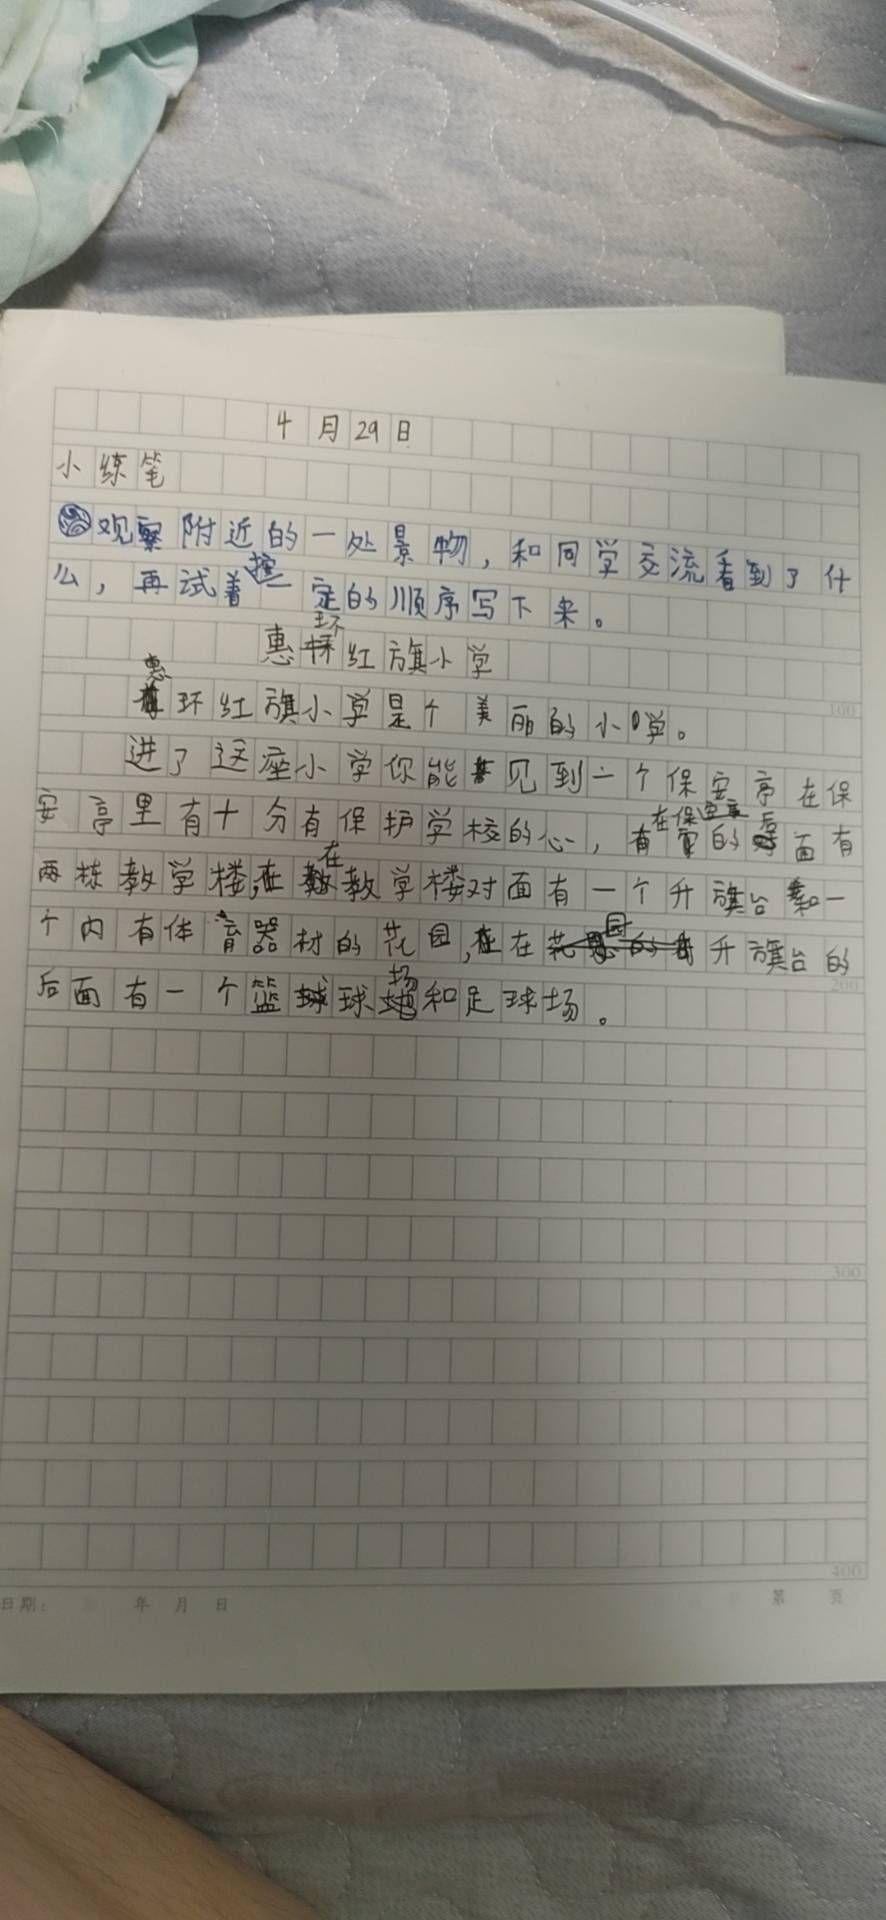 4月29日
小练笔
观察附近的一处景物，和同学交流看到了什
么，再试着按一定的顺序写下来。
惠环红旗小学
惠环红旗小学是个美丽的小学。
进了这座小学你能见到一个保安亭在保
安亭里有十分有保护学校的心，在保安亭的后面有
两栋教学楼，在教学楼对面有一个升旗台和一
个内有体育器材的花园，在升旗台的
后面有一个篮球场和足球场。
100
200
300
400
日期： 年 月 日
第 页